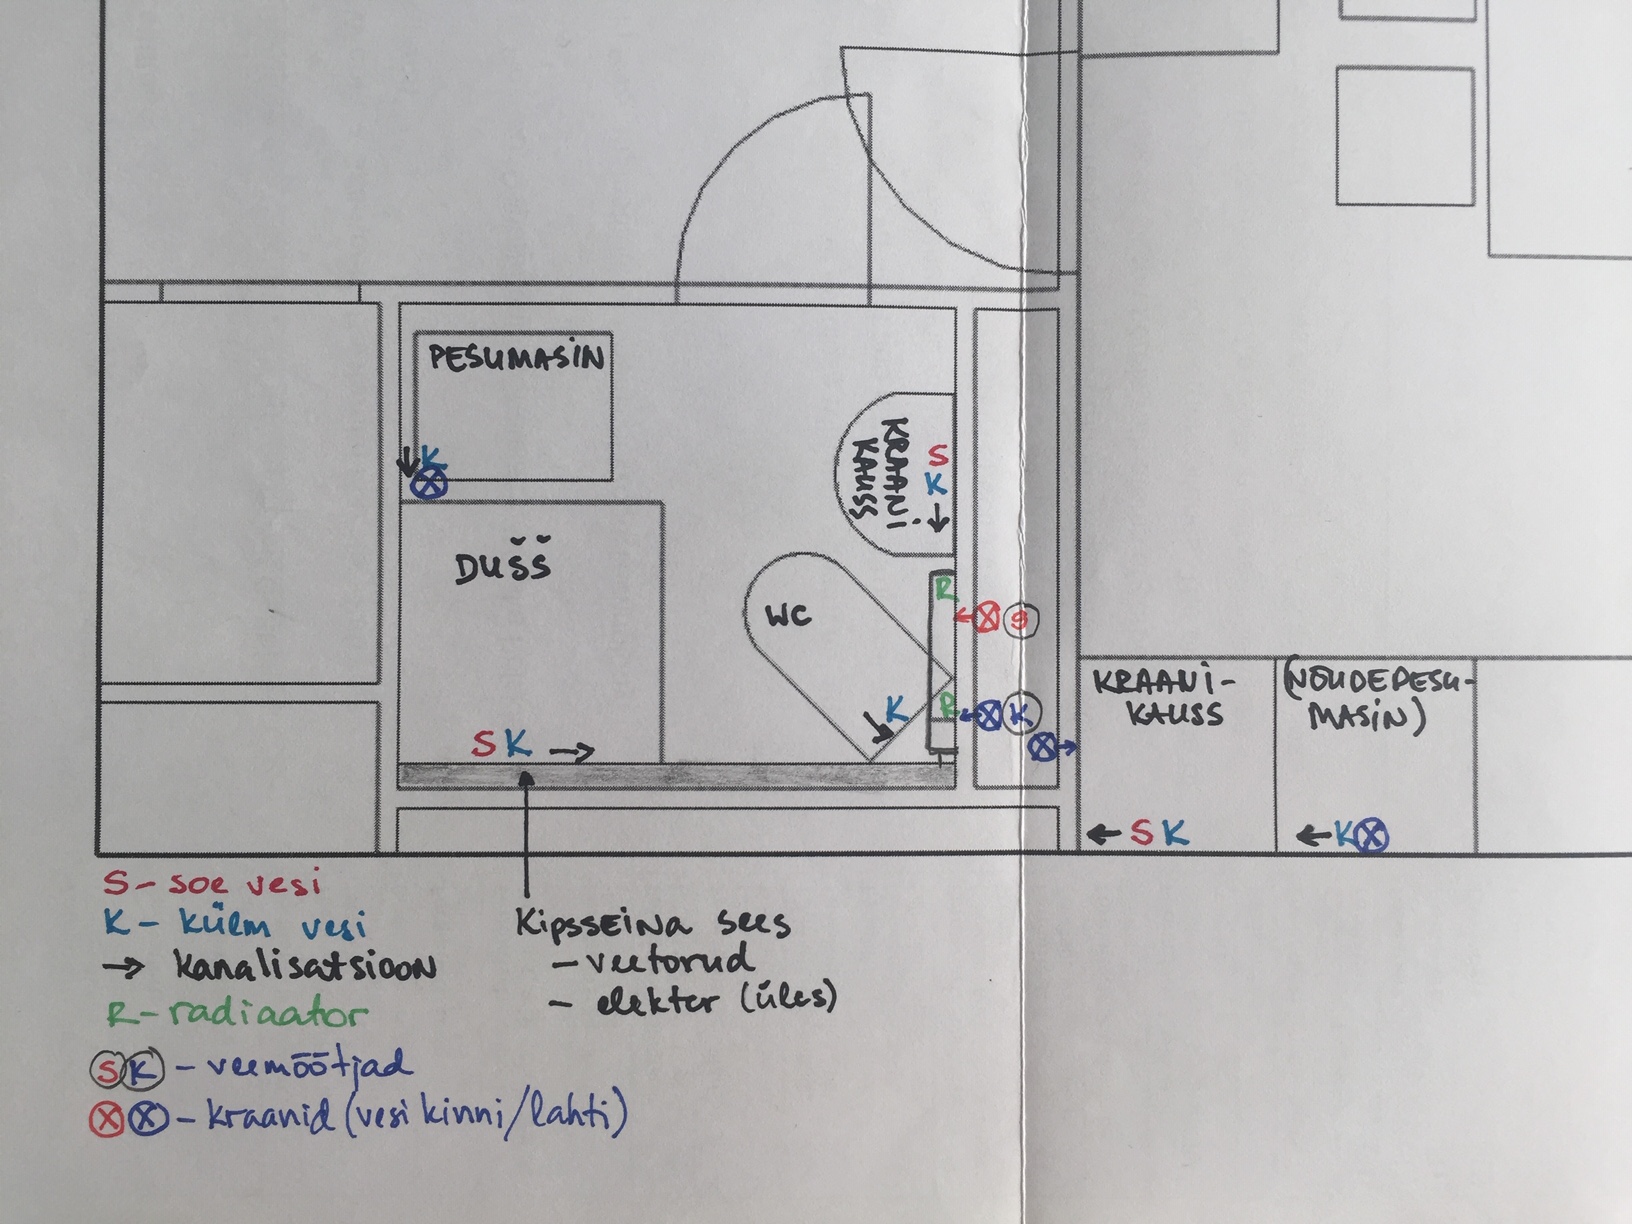 PESUMASIN
K
DUŠŠ
S K →
KRAANI
KAUSS
S
K
WC
K
R
R
S
K
KRAANI-
KAUSS
← S K
(NÕUDEPESU-
MASIN)
← K
S - soe vesi
K - külm vesi
→ kanalisatsioon
R - radiaator
S K - veemõõtjad
- kraanid (vesi kinni/lahti)
Kipsseina sees
- veetorud
- elekter (üles)